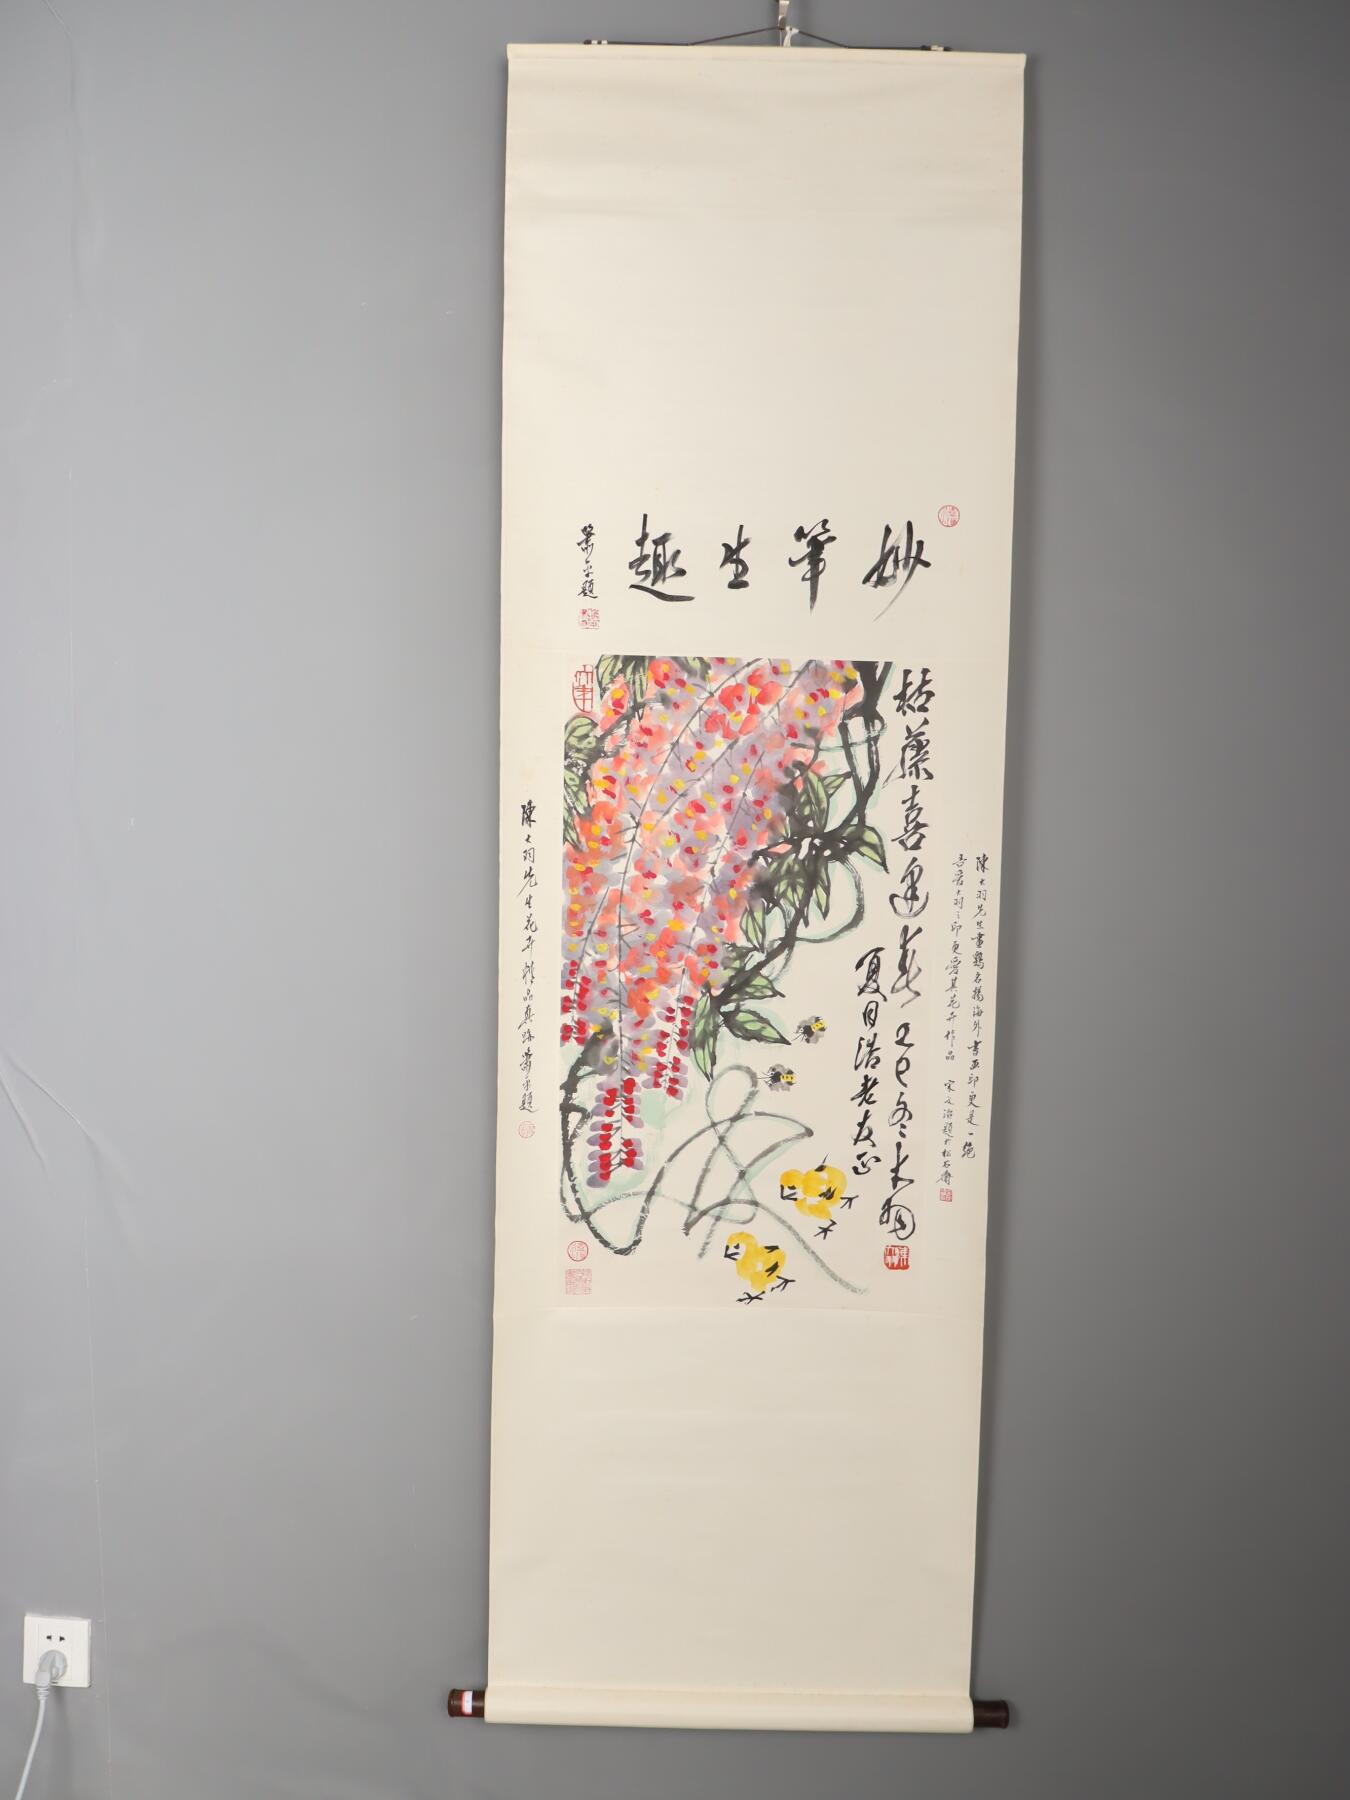 妙筆生趣
蕭平題
枯藤喜逢春 乙巳冬大羽
夏月浩老友正
陳大羽先生畫鷄名揚海外書画印更是一絕
吾愛大羽之印更愛其花卉作品 宋文治題於松石齋
陳大羽先生花卉精品真跡蕭平題